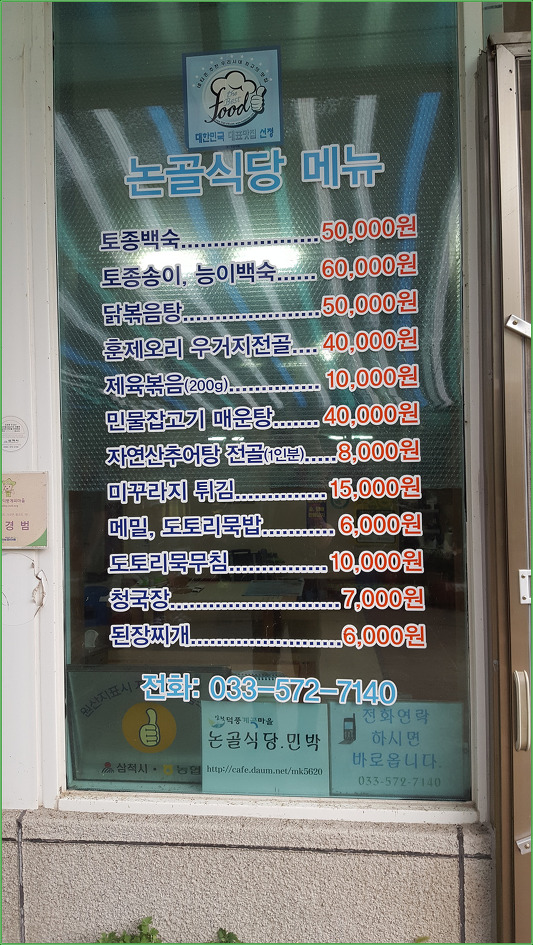 the Best
food
대한민국 대표맛집 선정
논골식당 메뉴
토종백숙....................50,000원
토종송이, 능이백숙......60,000원
닭볶음탕....................50,000원
훈제오리 우거지전골....40,000원
제육볶음(200g)..............10,000원
민물잡고기 매운탕.......40,000원
자연산추어탕 전골(1인분).....8,000원
미꾸라지 튀김..............15,000원
메밀, 도토리묵밥...........6,000원
도토리묵무침...............10,000원
청국장..........................7,000원
된장찌개.......................6,000원
전화: 033-572-7140
원산지표시
삼척시 · 농협
덕풍계곡마을
논골식당.민박
http://cafe.daum.net/mk5620
전화연락
하시면
바로옵니다.
033-572-7140
경범